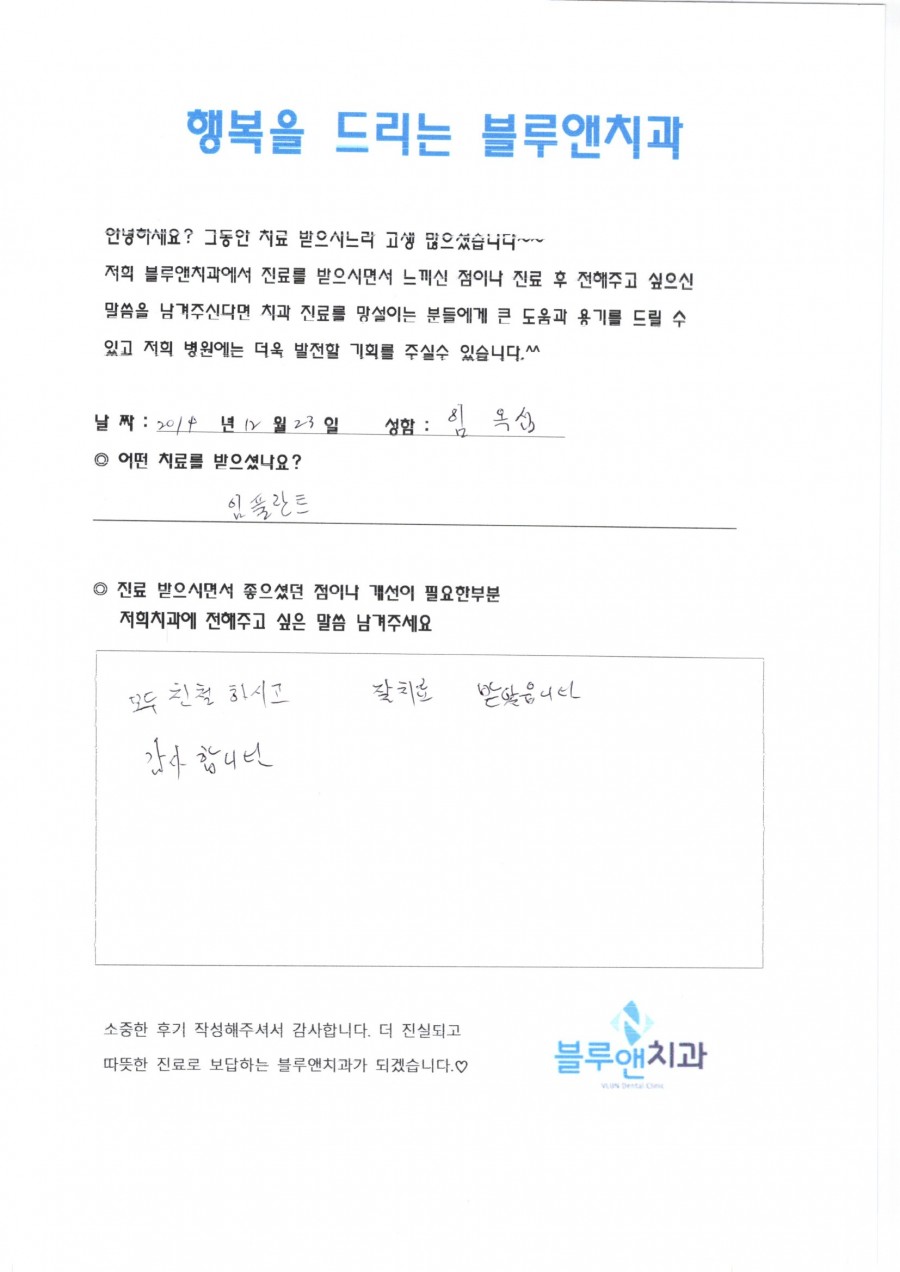 행복을 드리는 블루앤치과
안녕하세요? 그동안 치료 받으시느라 고생 많으셨습니다~~
저희 블루앤치과에서 진료를 받으시면서 느끼신 점이나 진료 후 전해주고 싶으신
말씀을 남겨주신다면 치과 진료를 망설이는 분들에게 큰 도움과 용기를 드릴 수
있고 저희 병원에는 더욱 발전할 기회를 주실수 있습니다.^^
날 짜 : 2014 년 12 월 23 일 성함 : 임 옥
◎ 어떤 치료를 받으셨나요?
임플란트
◎ 진료 받으시면서 좋으셨던 점이나 개선이 필요한부분
저희치과에 전해주고 싶은 말씀 남겨주세요
모두 친철 하시고 잘치료 받았읍니다
감사 합니다
소중한 후기 작성해주셔서 감사합니다. 더 진실되고
따뜻한 진료로 보답하는 블루앤치과가 되겠습니다.♡
블루앤치과
Dental Clinic